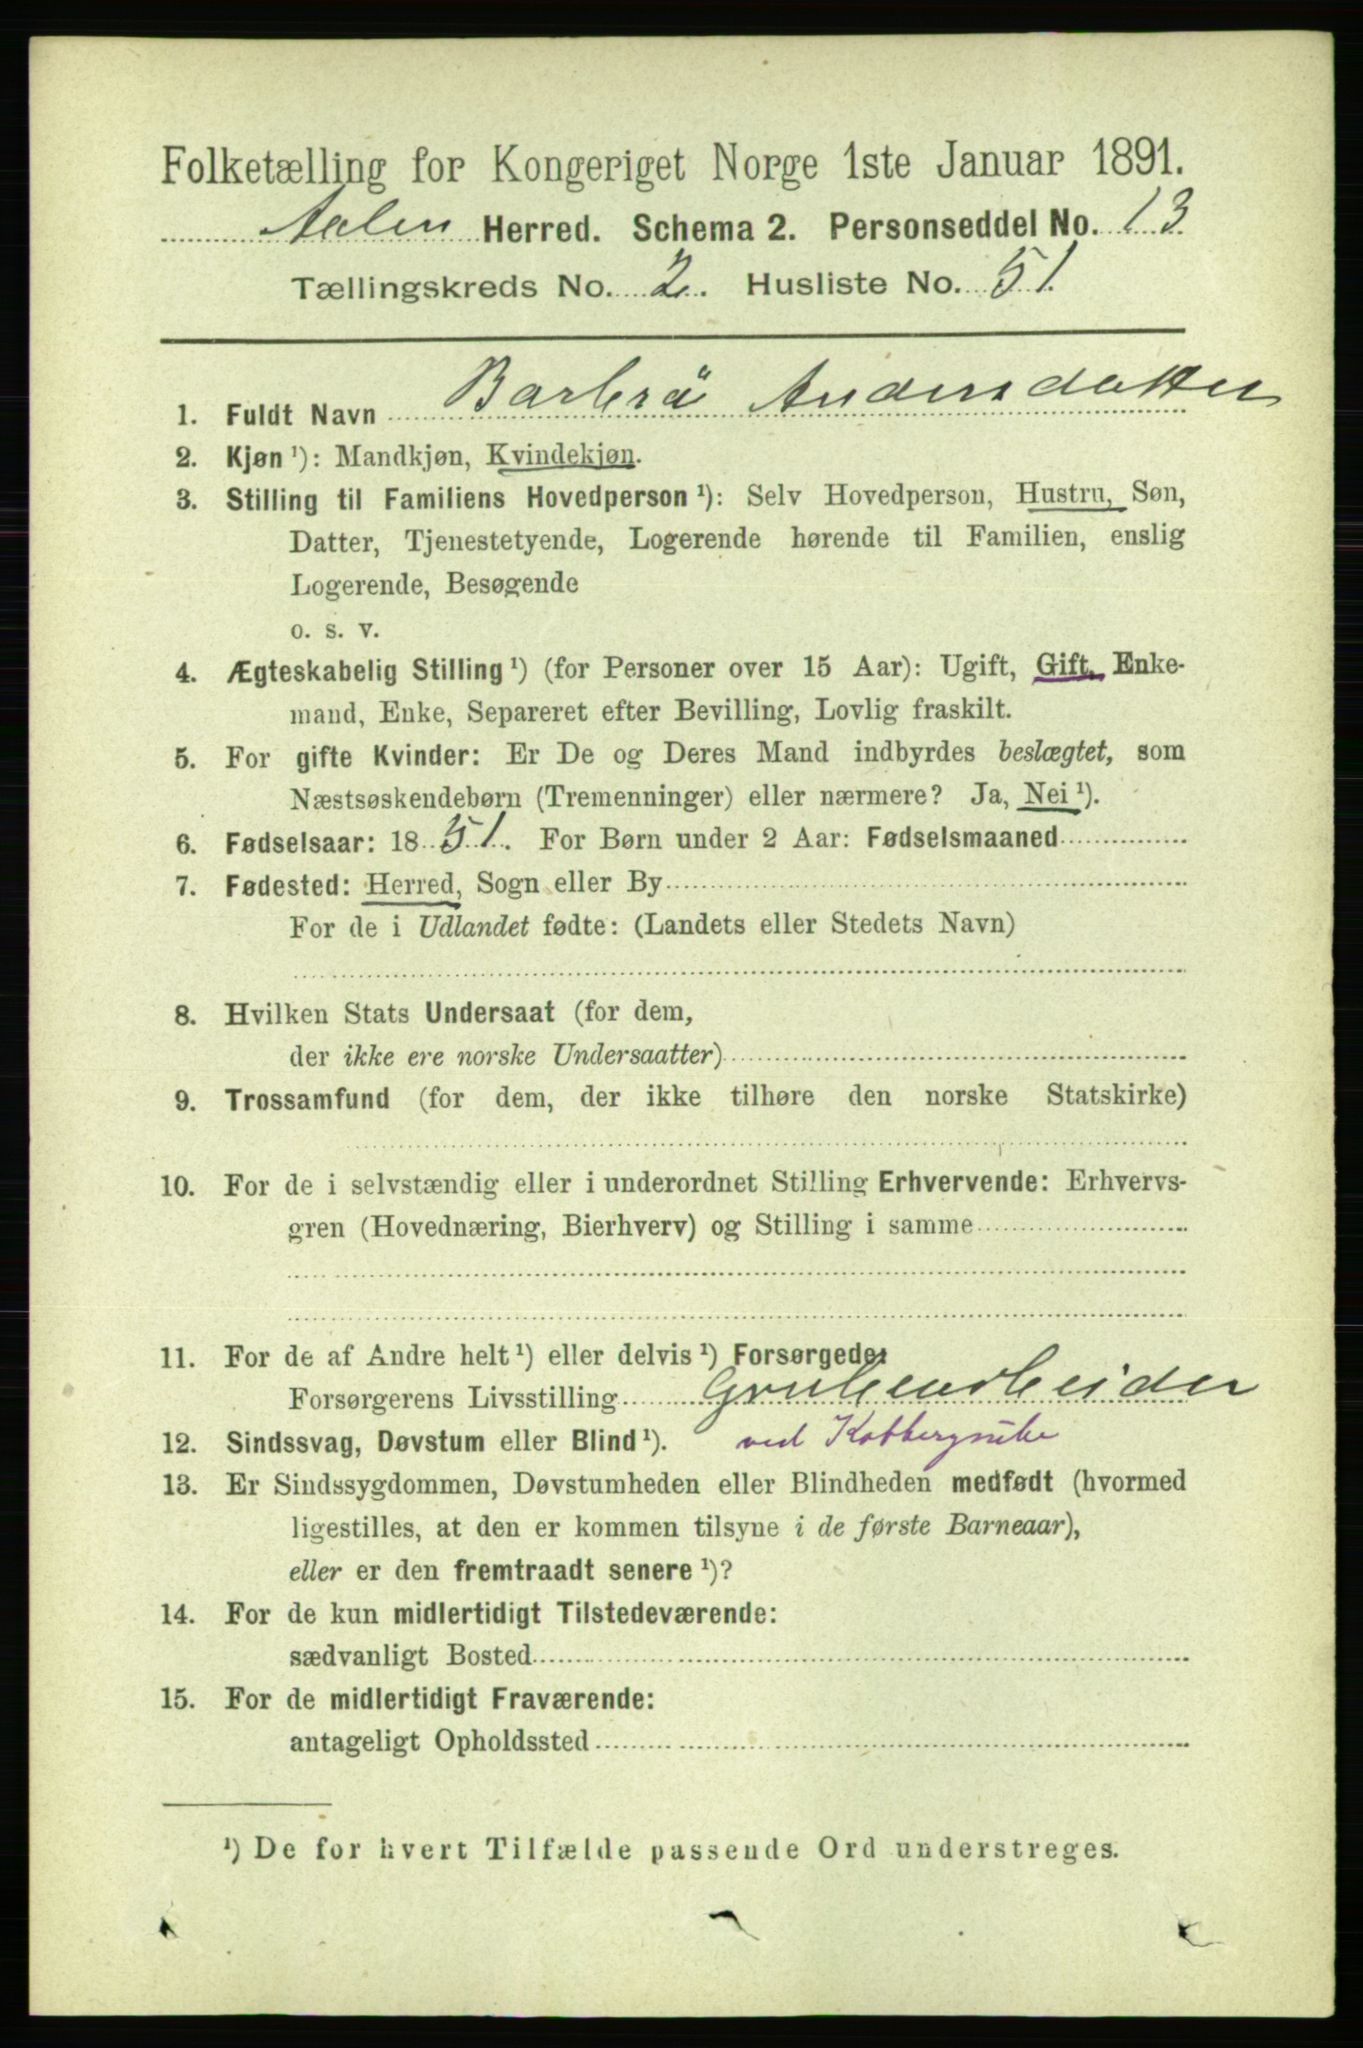 Folketælling for Kongeriget Norge 1ste Januar 1891.
Aalen Herred. Schema 2. Personseddel No. 13
Tællingskreds No. 2. Husliste No. 51
1. Fuldt Navn Barbrä Andersdatter
2. Kjøn ¹): Mandkjøn, Kvindekjøn.
3. Stilling til Familiens Hovedperson ¹): Selv Hovedperson, Hustru, Søn,
Datter, Tjenestetyende, Logerende hørende til Familien, enslig
Logerende, Besøgende
o. s. v.
4. Ægteskabelig Stilling ¹) (for Personer over 15 Aar): Ugift, Gift, Enke-
mand, Enke, Separeret efter Bevilling, Lovlig fraskilt.
5. For gifte Kvinder: Er De og Deres Mand indbyrdes beslægtet, som
Næstsøskendebørn (Tremenninger) eller nærmere? Ja, Nei ¹).
6. Fødselsaar: 1851. For Børn under 2 Aar: Fødselsmaaned
7. Fødested: Herred, Sogn eller By
For de i Udlandet fødte: (Landets eller Stedets Navn)
8. Hvilken Stats Undersaat (for dem,
der ikke ere norske Undersaatter)
9. Trossamfund (for dem, der ikke tilhøre den norske Statskirke)
10. For de i selvstændig eller i underordnet Stilling Erhvervende: Erhvervs-
gren (Hovednæring, Bierhverv) og Stilling i samme
11. For de af Andre helt ¹) eller delvis ¹) Forsørgede:
Forsørgerens Livsstilling Grubearbeider
12. Sindssvag, Døvstum eller Blind ¹). ved Kobbergrube
13. Er Sindssygdommen, Døvstumheden eller Blindheden medfødt (hvormed
ligestilles, at den er kommen tilsyne i de første Barneaar),
eller er den fremtraadt senere ¹)?
14. For de kun midlertidigt Tilstedeværende:
sædvanligt Bosted
15. For de midlertidigt Fraværende:
antageligt Opholdssted
¹) De for hvert Tilfælde passende Ord understreges.